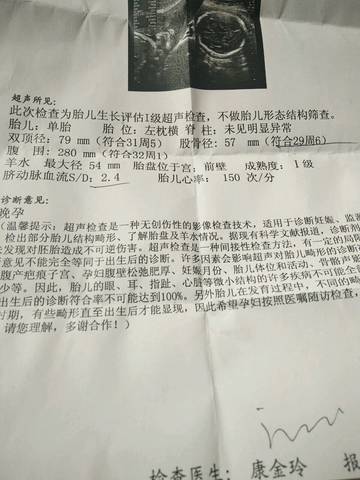 超声所见:
此次检查为胎儿生长评估I级超声检查，不做胎儿形态结构筛查。
胎儿: 单胎 胎 位: 左枕横 脊 柱: 未见明显异常
双顶径: 79 mm（符合31周5） 股骨径: 57 mm（符合29周6）
腹 围: 280 mm（符合32周1）
羊水 最大径 54 mm 胎盘位于宫: 前壁 成熟度: I 级
脐动脉血流S/D: 2.4 胎儿心率: 150 次/分
诊断意见:
晚孕
（温馨提示: 超声检查是一种无创伤性的影像检查技术，适用于诊断妊娠、监测
检出部分胎儿结构畸形、了解胎盘及羊水情况。据现有科学文献报道，诊断剂
发现对胚胎造成不可逆伤害。超声检查是一种间接性检查方法，有一定的局限
意见不能完全等同于出生后的诊断。许多因素会影响超声对胎儿畸形的诊断
腹产疤痕子宫、孕妇腹壁松弛肥厚、妊娠月份、胎儿体位和活动、骨骼声影
少等。因此，胎儿的眼、耳、指趾、心脏等微小结构的许多疾病不可能全
出生后的诊断符合率不可能达到100%。另外胎儿在发育过程中，不同的畸
时期，有些畸形直至出生后才能显现，因此希望孕妇按照医嘱随访检查，
请您理解，多谢合作！）
检查医生: 康金玲 报